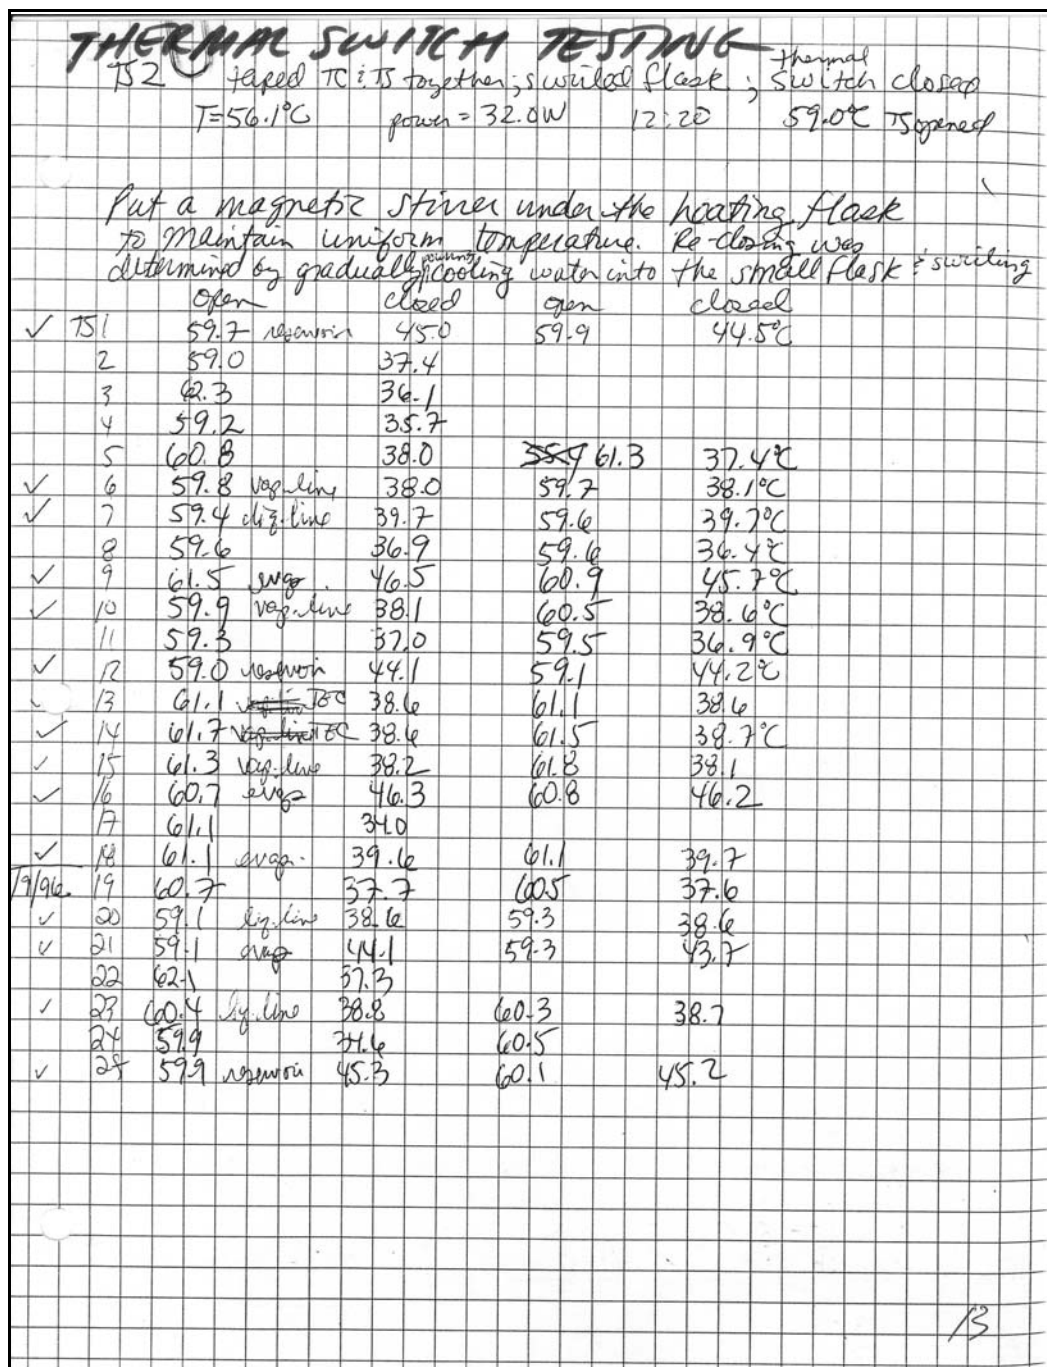 THERMAL SWITCH TESTING
TS2 taped TC & TS together; swirled flask; thermal switch closed
T=56.1°C power = 32.0W 12:20 59.0°C TS opened
Put a magnetic stirrer under the heating flask
to maintain uniform temperature. Re-closing was
determined by gradually pouring cooling water into the small flask & swirling
open closed open closed
✓ TS1 59.7 reservoir 45.0 59.9 44.5°C
2 59.0 37.4
3 62.3 36.1
4 59.2 35.7
5 60.8 38.0 61.3 37.4°C
✓ 6 59.8 vap. line 38.0 59.7 38.1°C
✓ 7 59.4 liq. line 39.7 59.6 39.7°C
8 59.6 36.9 59.6 36.4°C
✓ 9 61.5 evap. 46.5 60.9 45.7°C
✓ 10 59.9 vap. line 38.1 60.5 38.6°C
11 59.3 37.0 59.5 36.9°C
✓ 12 59.0 reservoir 44.1 59.1 44.2°C
✓ 13 61.1 TEC 38.6 61.1 38.6
✓ 14 61.7 vap. line TEC 38.6 61.5 38.7°C
✓ 15 61.3 vap. line 38.2 61.8 38.1
✓ 16 60.7 evap 46.3 60.8 46.2
17 61.1 34.0
✓ 18 61.1 evap. 39.6 61.1 39.7
19/96 19 60.7 37.7 60.5 37.6
✓ 20 59.1 liq. line 38.6 59.3 38.6
✓ 21 59.1 evap 44.1 59.3 43.7
22 62.1 37.3
✓ 23 60.4 liq. line 38.8 60.3 38.7
24 59.9 34.6 60.5
✓ 25 59.9 reservoir 45.3 60.1 45.2
13